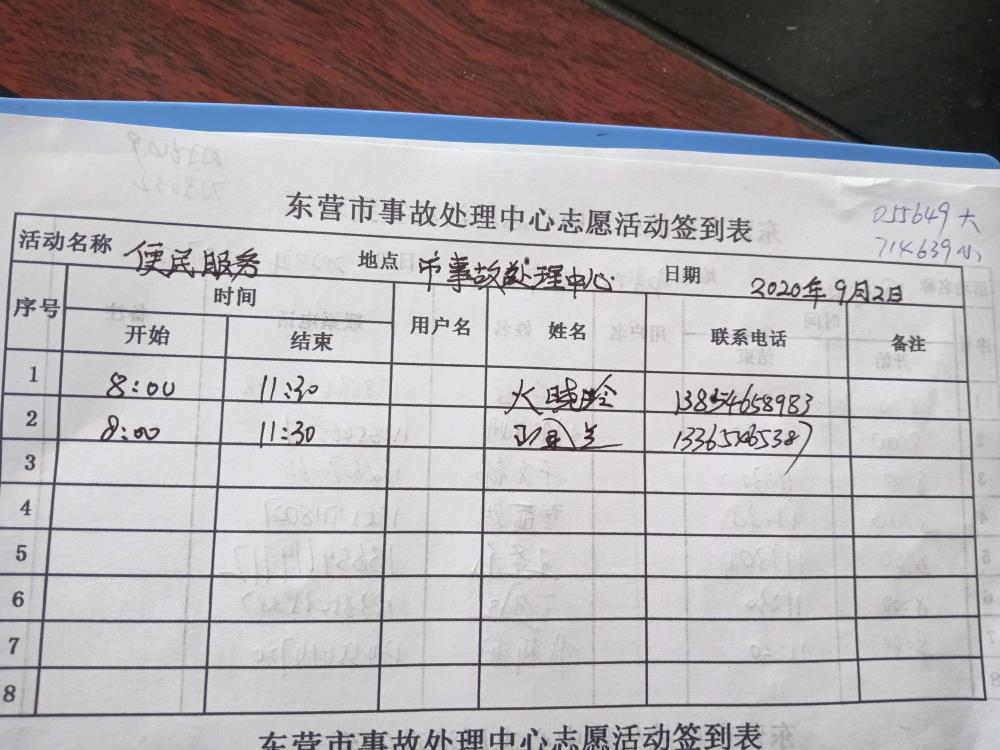 东营市事故处理中心志愿活动签到表
055649大
714639小
活动名称 便民服务 地点 市事故处理中心 日期 2020年9月2日
序号 时间 用户名 姓名 联系电话 备注
开始 结束
1 8:00 11:30 13854658983
2 8:00 11:30 13365465387
3
4
5
6
7
8
东营市事故处理中心志愿活动签到表